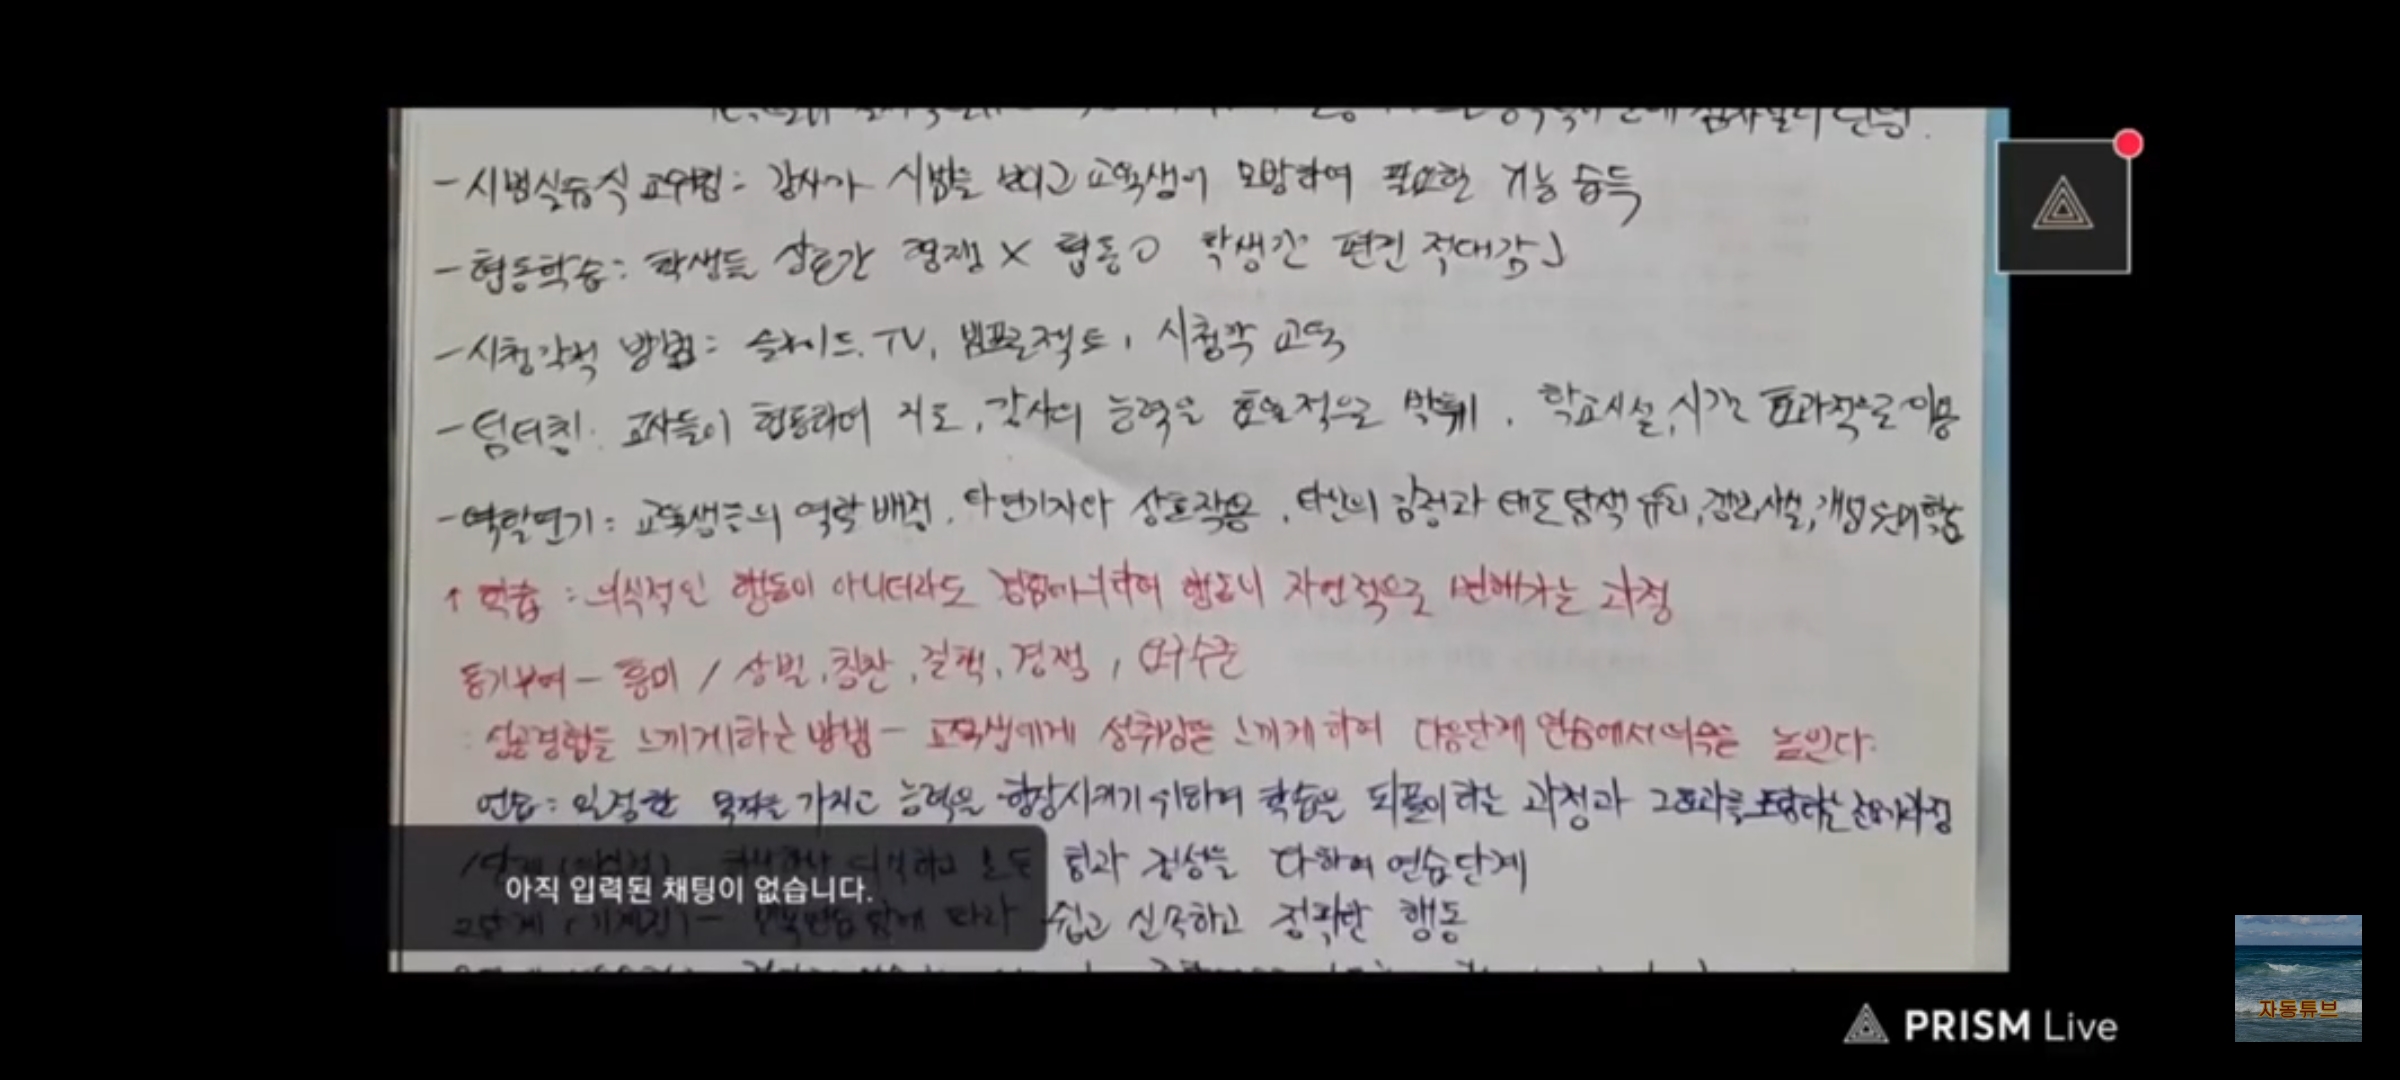 - 시범실습식 교육법 : 강사가 시범을 보이고 교육생이 모방하여 필요한 기능 습득
- 협동학습 : 학생들 상호간 경쟁 X 협동 O 학생간 편견 적대감↓
- 시청각적 방법 : 슬라이드. TV, 빔프로젝트, 시청각 교육
- 팀티칭 : 교사들이 협동하여 지도, 강사의 능력을 효율적으로 발휘, 학교시설, 시간 효과적으로 이용
- 역할연기 : 교육생들의 역할 배정, 타연기자와 상호작용, 타인의 감정과 태도 탐색
↑ 학습 : 의식적인 행동이 아니더라도 경험에의하여 행동이 자연적으로 변해가는 과정
동기부여 - 흥미 / 상벌, 칭찬, 질책, 경쟁, 요구수준
: 성공경험을 느끼게하는 방법 - 교육생에게 성취감을 느끼게 하여 다음단계 연습에서 의욕을 높인다.
연습 : 일정한 목적을 가지고 능력을 향상시키기 위하여 학습을 되풀이 하는 과정과 그효과를 포함하는
1단계 힘과 정성을 다하여 연습단계
아직 입력된 채팅이 없습니다.
2단계 (기계적) - 반복연습 따라 쉽고 신속하고 정확한 행동
PRISM Live
자동튜브